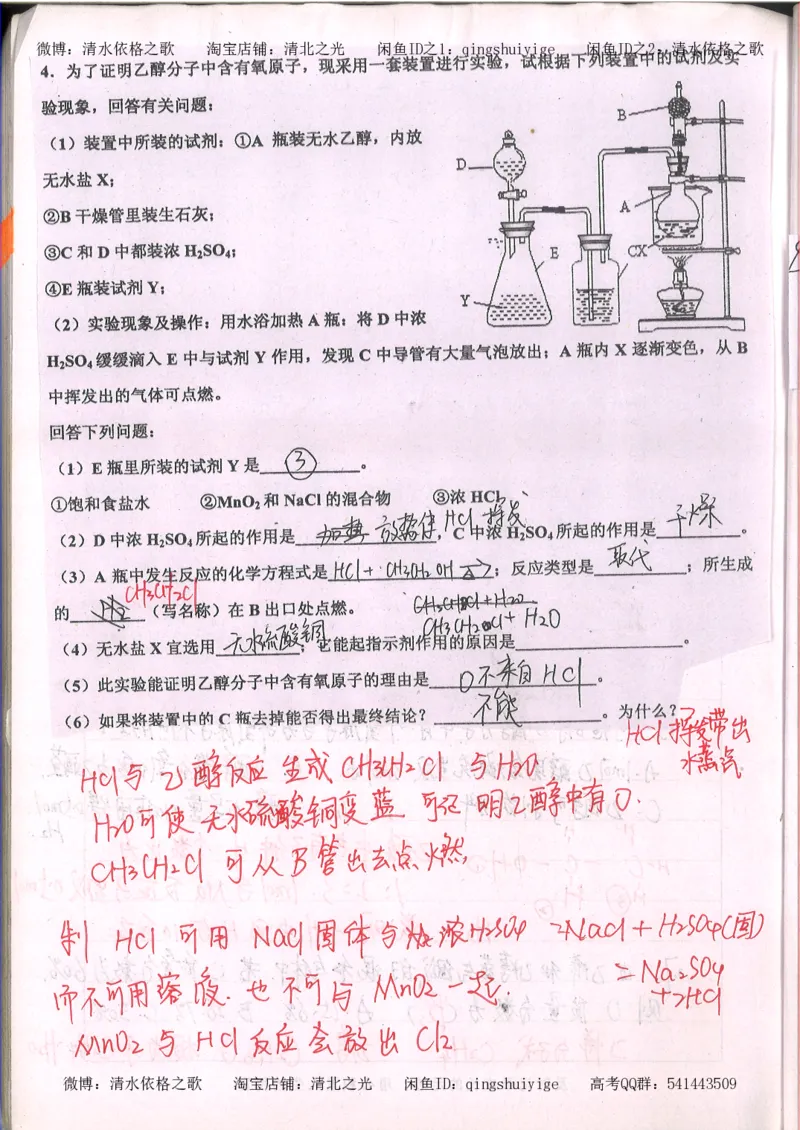 微博：清水依格之歌 淘宝店铺：清北之光 闲鱼ID之1：qingshuiyige 闲鱼ID之2：清水依格之歌
4．为了证明乙醇分子中含有氧原子，现采用一套装置进行实验，试根据下列装置中的试剂及实
验现象，回答有关问题：
（1）装置中所装的试剂：①A 瓶装无水乙醇，内放
无水盐 X；
②B 干燥管里装生石灰；
③C 和 D 中都装浓 H₂SO₄；
④E 瓶装试剂 Y；
B
D
A
E
CX
Y
（2）实验现象及操作：用水浴加热 A 瓶：将 D 中浓
H₂SO₄ 缓缓滴入 E 中与试剂 Y 作用，发现 C 中导管有大量气泡放出；A 瓶内 X 逐渐变色，从 B
中挥发出的气体可点燃。
回答下列问题：
（1）E 瓶里所装的试剂 Y 是 ③ 。
①饱和食盐水 ②MnO₂ 和 NaCl 的混合物 ③浓 HCl
（2）D 中浓 H₂SO₄ 所起的作用是 加热 放热使 HCl 挥发 ，C 中浓 H₂SO₄ 所起的作用是 干燥 。
（3）A 瓶中发生反应的化学方程式是 HCl + CH3CH2OH → ；反应类型是 取代 ；所生成
CH3CH2Cl
的 H2 （写名称）在 B 出口处点燃。 CH3CH2Cl + H2O
CH3CH2Cl + H2O
（4）无水盐 X 宜选用 无水硫酸铜 ；它能起指示剂作用的原因是 。
（5）此实验能证明乙醇分子中含有氧原子的理由是 O不来自HCl 。
（6）如果将装置中的 C 瓶去掉能否得出最终结论？ 不能 。为什么？
HCl 挥发带出
水蒸汽
HCl与乙醇反应生成 CH3CH2Cl 与 H2O
H2O可使无水硫酸铜变蓝 可证明乙醇中有O.
CH3CH2Cl 可从B管出去点燃
制 HCl 可用 NaCl固体与 浓H2SO4 2NaCl + H2SO4(固)
= Na2SO4
+ 2HCl
而不可用溶液. 也不可与 MnO2 一起.
MnO2 与 HCl 反应会放出 Cl2
微博：清水依格之歌 淘宝店铺：清北之光 闲鱼ID：qingshuiyige 高考QQ群：541443509